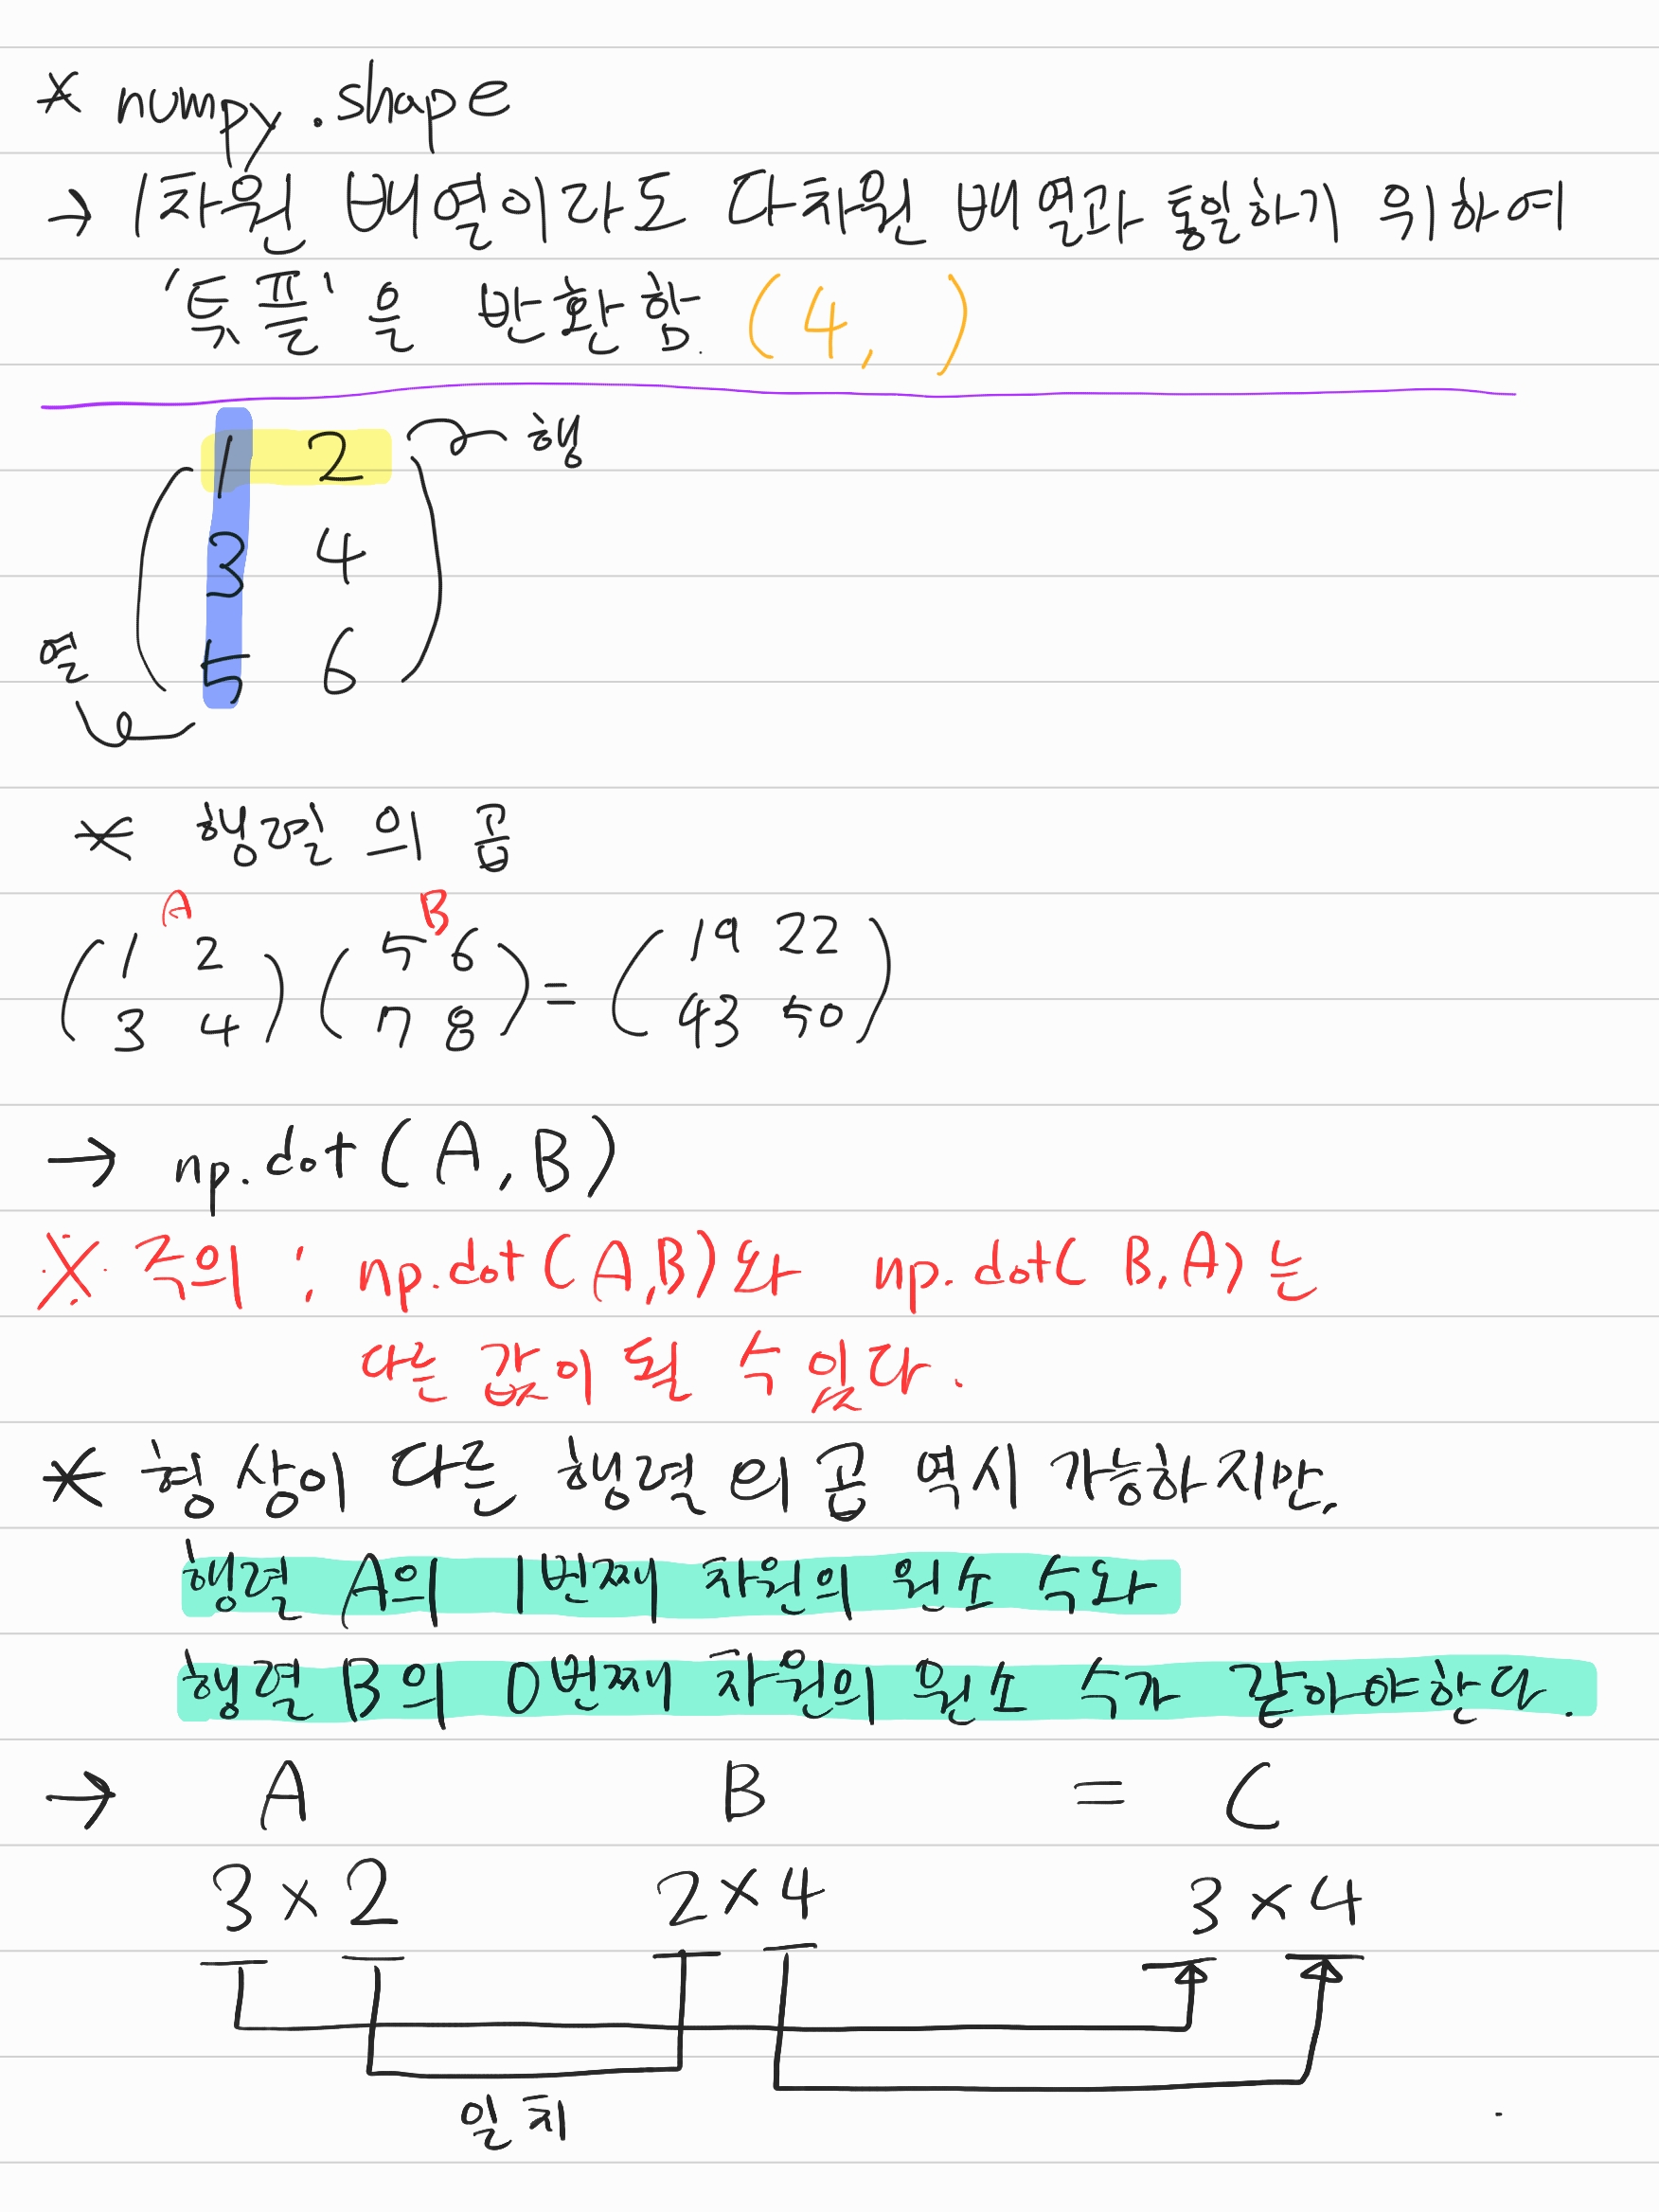 * numpy.shape
→ 1차원 배열이라도 다차원 배열과 통일하기 위하여
'튜플'을 반환함. (4, )
1 2 행
3 4
열 5 6
* 행렬의 곱
A B
(1 2) (5 6) = (19 22)
(3 4) (7 8) (43 50)
→ np.dot(A,B)
※ 주의 : np.dot(A,B)와 np.dot(B,A)는
다른 값이 될 수 있다.
* 형상이 다른 행렬의 곱 역시 가능하지만,
행렬 A의 1번째 차원의 원소 수와
행렬 B의 0번째 차원의 원소 수가 같아야한다.
→ A B = C
3 × 2 2 × 4 3 × 4
일치